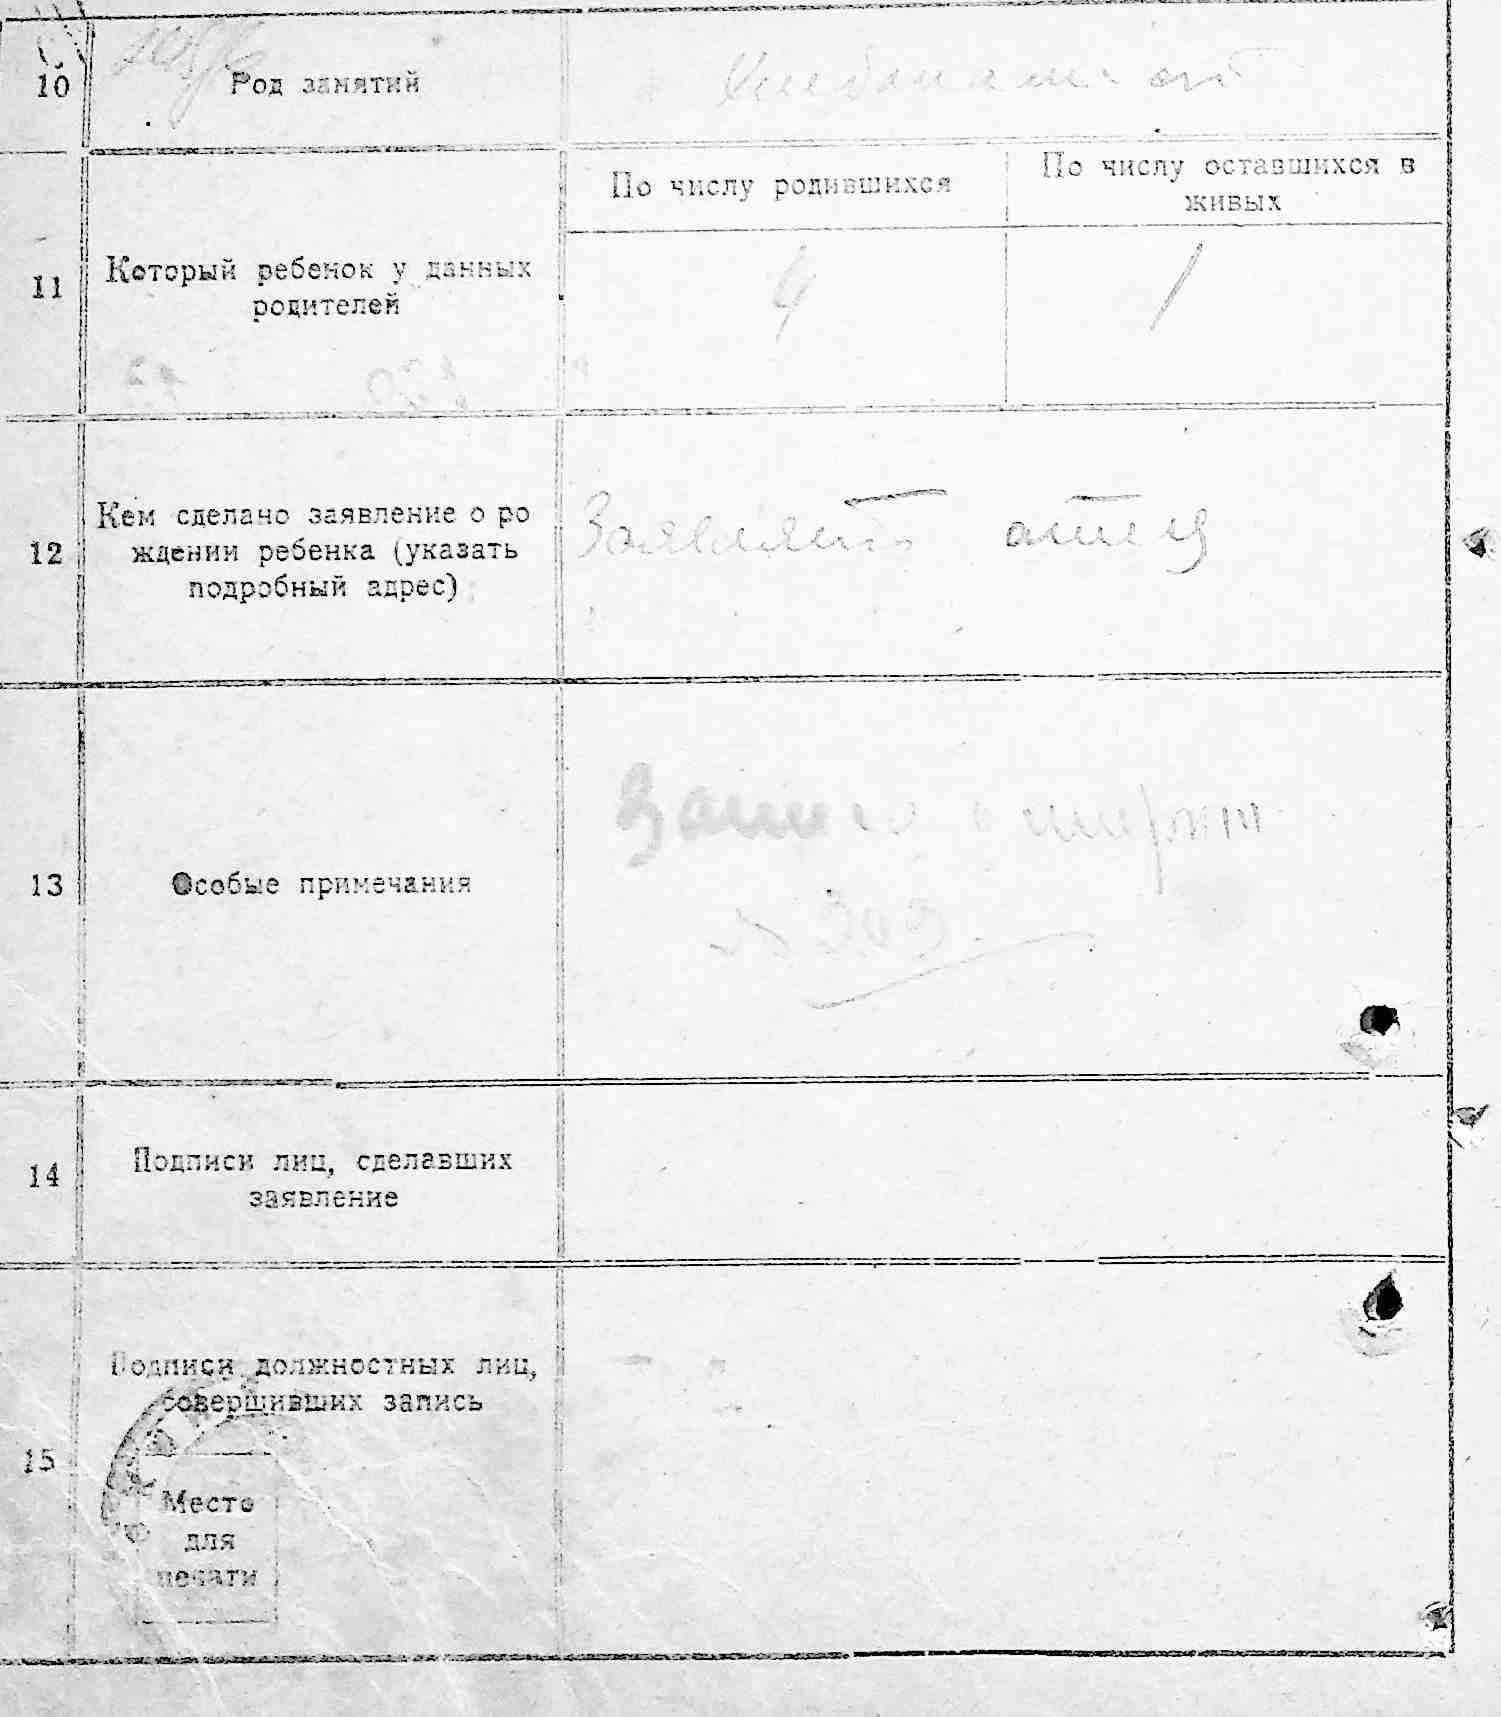 10
Род занятий
Хлебопашест
По числу родившихся
По числу оставшихся в
живых
11
Который ребенок у данных
родителей
4
1
12
Кем сделано заявление о ро
ждении ребенка (указать
подробный адрес)
Заявляет отец
13
Особые примечания
Запись о смерти
№ 303
14
Подписи лиц, сделавших
заявление
15
Подписи должностных лиц,
совершивших запись
Место
для
печати